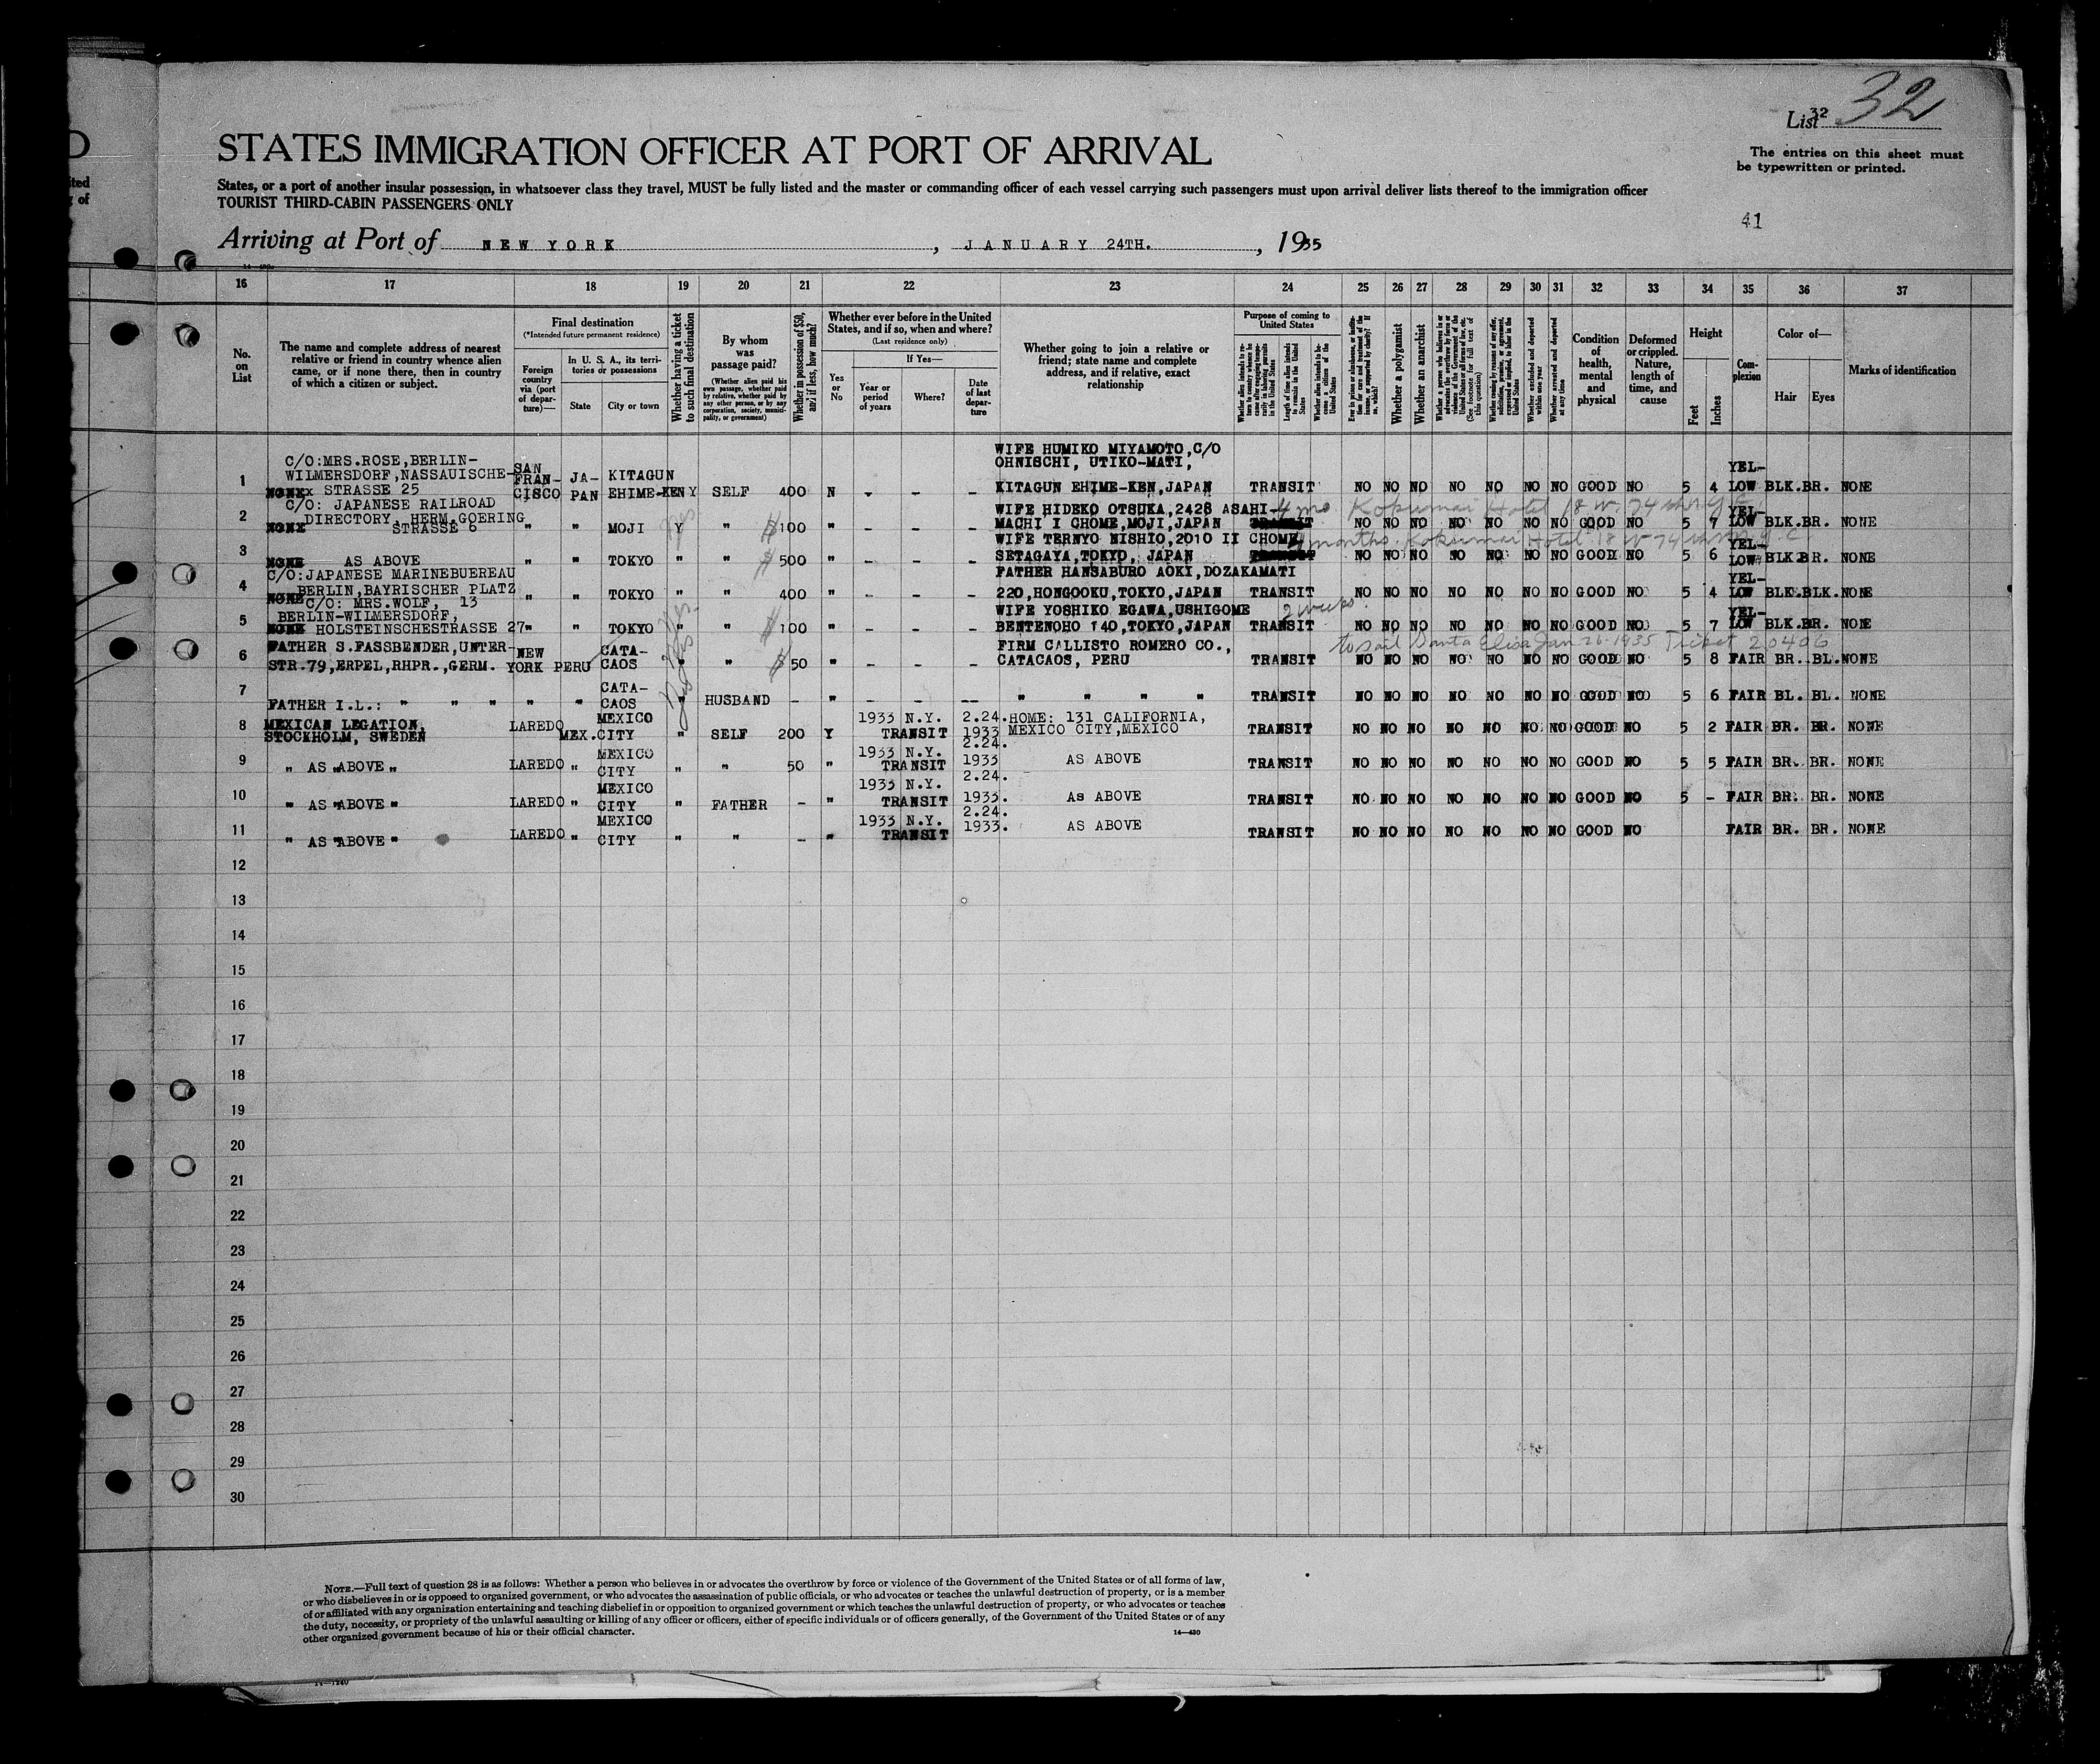 D
ited
g of
List 32 32
STATES IMMIGRATION OFFICER AT PORT OF ARRIVAL
The entries on this sheet must
be typewritten or printed.
States, or a port of another insular possession, in whatsoever class they travel, MUST be fully listed and the master or commanding officer of each vessel carrying such passengers must upon arrival deliver lists thereof to the immigration officer
TOURIST THIRD-CABIN PASSENGERS ONLY
41
Arriving at Port of NEW YORK, JANUARY 24TH., 1935
16 17 18 19 20 21 22 23 24 25 26 27 28 29 30 31 32 33 34 35 36 37
No. on List
The name and complete address of nearest relative or friend in country whence alien came, or if none there, then in country of which a citizen or subject.
Final destination
(*Intended future permanent residence)
Foreign country via (port of departure)—
In U. S. A., its territories or possessions
State
City or town
Whether having a ticket to such final destination
By whom was passage paid?
(Whether alien paid his own passage, whether paid by relative, whether paid by any other person, or by any corporation, society, municipality, or government)
Whether in possession of $50, and if less, how much?
Whether ever before in the United States, and if so, when and where?
(Last residence only)
If Yes—
Yes or No
Year or period of years
Where?
Date of last departure
Whether going to join a relative or friend; state name and complete address, and if relative, exact relationship
Purpose of coming to United States
Length of time alien intends to remain in the United States
Whether alien intends to become a citizen of the United States
Whether a polygamist
Whether an anarchist
Whether excluded and deported within one year
Whether arrested and deported at any time
Condition of health, mental and physical
Deformed or crippled. Nature, length of time, and cause
Height
Feet
Inches
Complexion
Color of—
Hair
Eyes
Marks of identification
1 C/O:MRS.ROSE,BERLIN-WILMERSDORF,NASSAUISCHE-STRASSE 25 SAN FRANCISCO JAPAN KITAGUN EHIME-KEN Y SELF 400 N - - - WIFE HUMIKO MIYAMOTO,C/O OHNISCHI, UTIKO-MATI, KITAGUN EHIME-KEN,JAPAN TRANSIT NO NO NO NO NO NO NO GOOD NO 5 4 YELLOW BLK.BR. NONE
2 C/O: JAPANESE RAILROAD DIRECTORY, HERM.GOERING STRASSE 6 " " MOJI Y " $100 " - - - WIFE HIDEKO OTSUKA,2428 ASAHI-MACHI I CHOME,MOJI,JAPAN 4 mo. Kokumai Hotel 18 W. 74 NO NO NO NO NO NO NO GOOD NO 5 7 YELLOW BLK.BR. NONE
3 NONE AS ABOVE " " TOKYO " " $500 " - - - WIFE TERNYO NISHIO,2010 II CHOME SETAGAYA,TOKYO, JAPAN months. Kokumai Hotel 18 W 74 NO NO NO NO NO NO NO GOOD NO 5 6 YELLOW BLK.BR. NONE
4 C/O:JAPANESE MARINEBUEREAU BERLIN,BAYRISCHER PLATZ 13 " " TOKYO " " 400 " - - - FATHER HANSABURO AOKI,DOZAKAMATI 220,HONGOOKU,TOKYO,JAPAN TRANSIT NO NO NO NO NO NO NO GOOD NO 5 4 YELLOW BLK.BLK.NONE
5 C/O: MRS.WOLF, BERLIN-WILMERSDORF, HOLSTEINSCHESTRASSE 27 " " TOKYO " " $100 " - - - WIFE YOSHIKO EGAWA,USHIGOME BENTENOHO 140,TOKYO,JAPAN 2 weeks. TRANSIT NO NO NO NO NO NO NO GOOD NO 5 7 YELLOW BLK.BR. NONE
6 FATHER S.FASSBENDER,UNTER-STR.79,ERPEL,RHPR.,GERM. NEW YORK PERU CATACAOS " " $50 " - - - FIRM CALLISTO ROMERO CO., CATACAOS, PERU to sail Santa Elisa Jan 26-1935 Ticket 20406 TRANSIT NO NO NO NO NO NO NO GOOD NO 5 8 FAIR BR. BL. NONE
7 FATHER I.L.: " " " " " CATACAOS HUSBAND - " - - -- " " " " TRANSIT NO NO NO NO NO NO NO GOOD NO 5 6 FAIR BL. BL. NONE
8 MEXICAN LEGATION, STOCKHOLM, SWEDEN LAREDO MEX. MEXICO CITY " SELF 200 Y 1933 N.Y. TRANSIT 2.24. 1933 HOME: 131 CALIFORNIA, MEXICO CITY,MEXICO TRANSIT NO NO NO NO NO NO NO GOOD NO 5 2 FAIR BR. BR. NONE
9 " AS ABOVE " LAREDO " MEXICO CITY " " 50 " 1933 N.Y. TRANSIT 2.24. 1933 AS ABOVE TRANSIT NO NO NO NO NO NO NO GOOD NO 5 5 FAIR BR. BR. NONE
10 " AS ABOVE " LAREDO " MEXICO CITY " FATHER - " 1933 N.Y. TRANSIT 2.24. 1933. AS ABOVE TRANSIT NO NO NO NO NO NO NO GOOD NO 5 - FAIR BR. BR. NONE
11 " AS ABOVE " LAREDO " MEXICO CITY " " - " 1933 N.Y. TRANSIT 2.24. 1933. AS ABOVE TRANSIT NO NO NO NO NO NO NO GOOD NO FAIR BR. BR. NONE
12
13
14
15
16
17
18
19
20
21
22
23
24
25
26
27
28
29
30
NOTE.—Full text of question 28 is as follows: Whether a person who believes in or advocates the overthrow by force or violence of the Government of the United States or of all forms of law,
or who disbelieves in or is opposed to organized government, or who advocates the assassination of public officials, or who advocates or teaches the unlawful destruction of property, or is a member
of or affiliated with any organization entertaining and teaching disbelief in or opposition to organized government or which teaches the unlawful destruction of property, or who advocates or teaches
the duty, necessity, or propriety of the unlawful assaulting or killing of any officer or officers, either of specific individuals or of officers generally, of the Government of the United States or of any
other organized government because of his or their official character.
14—430